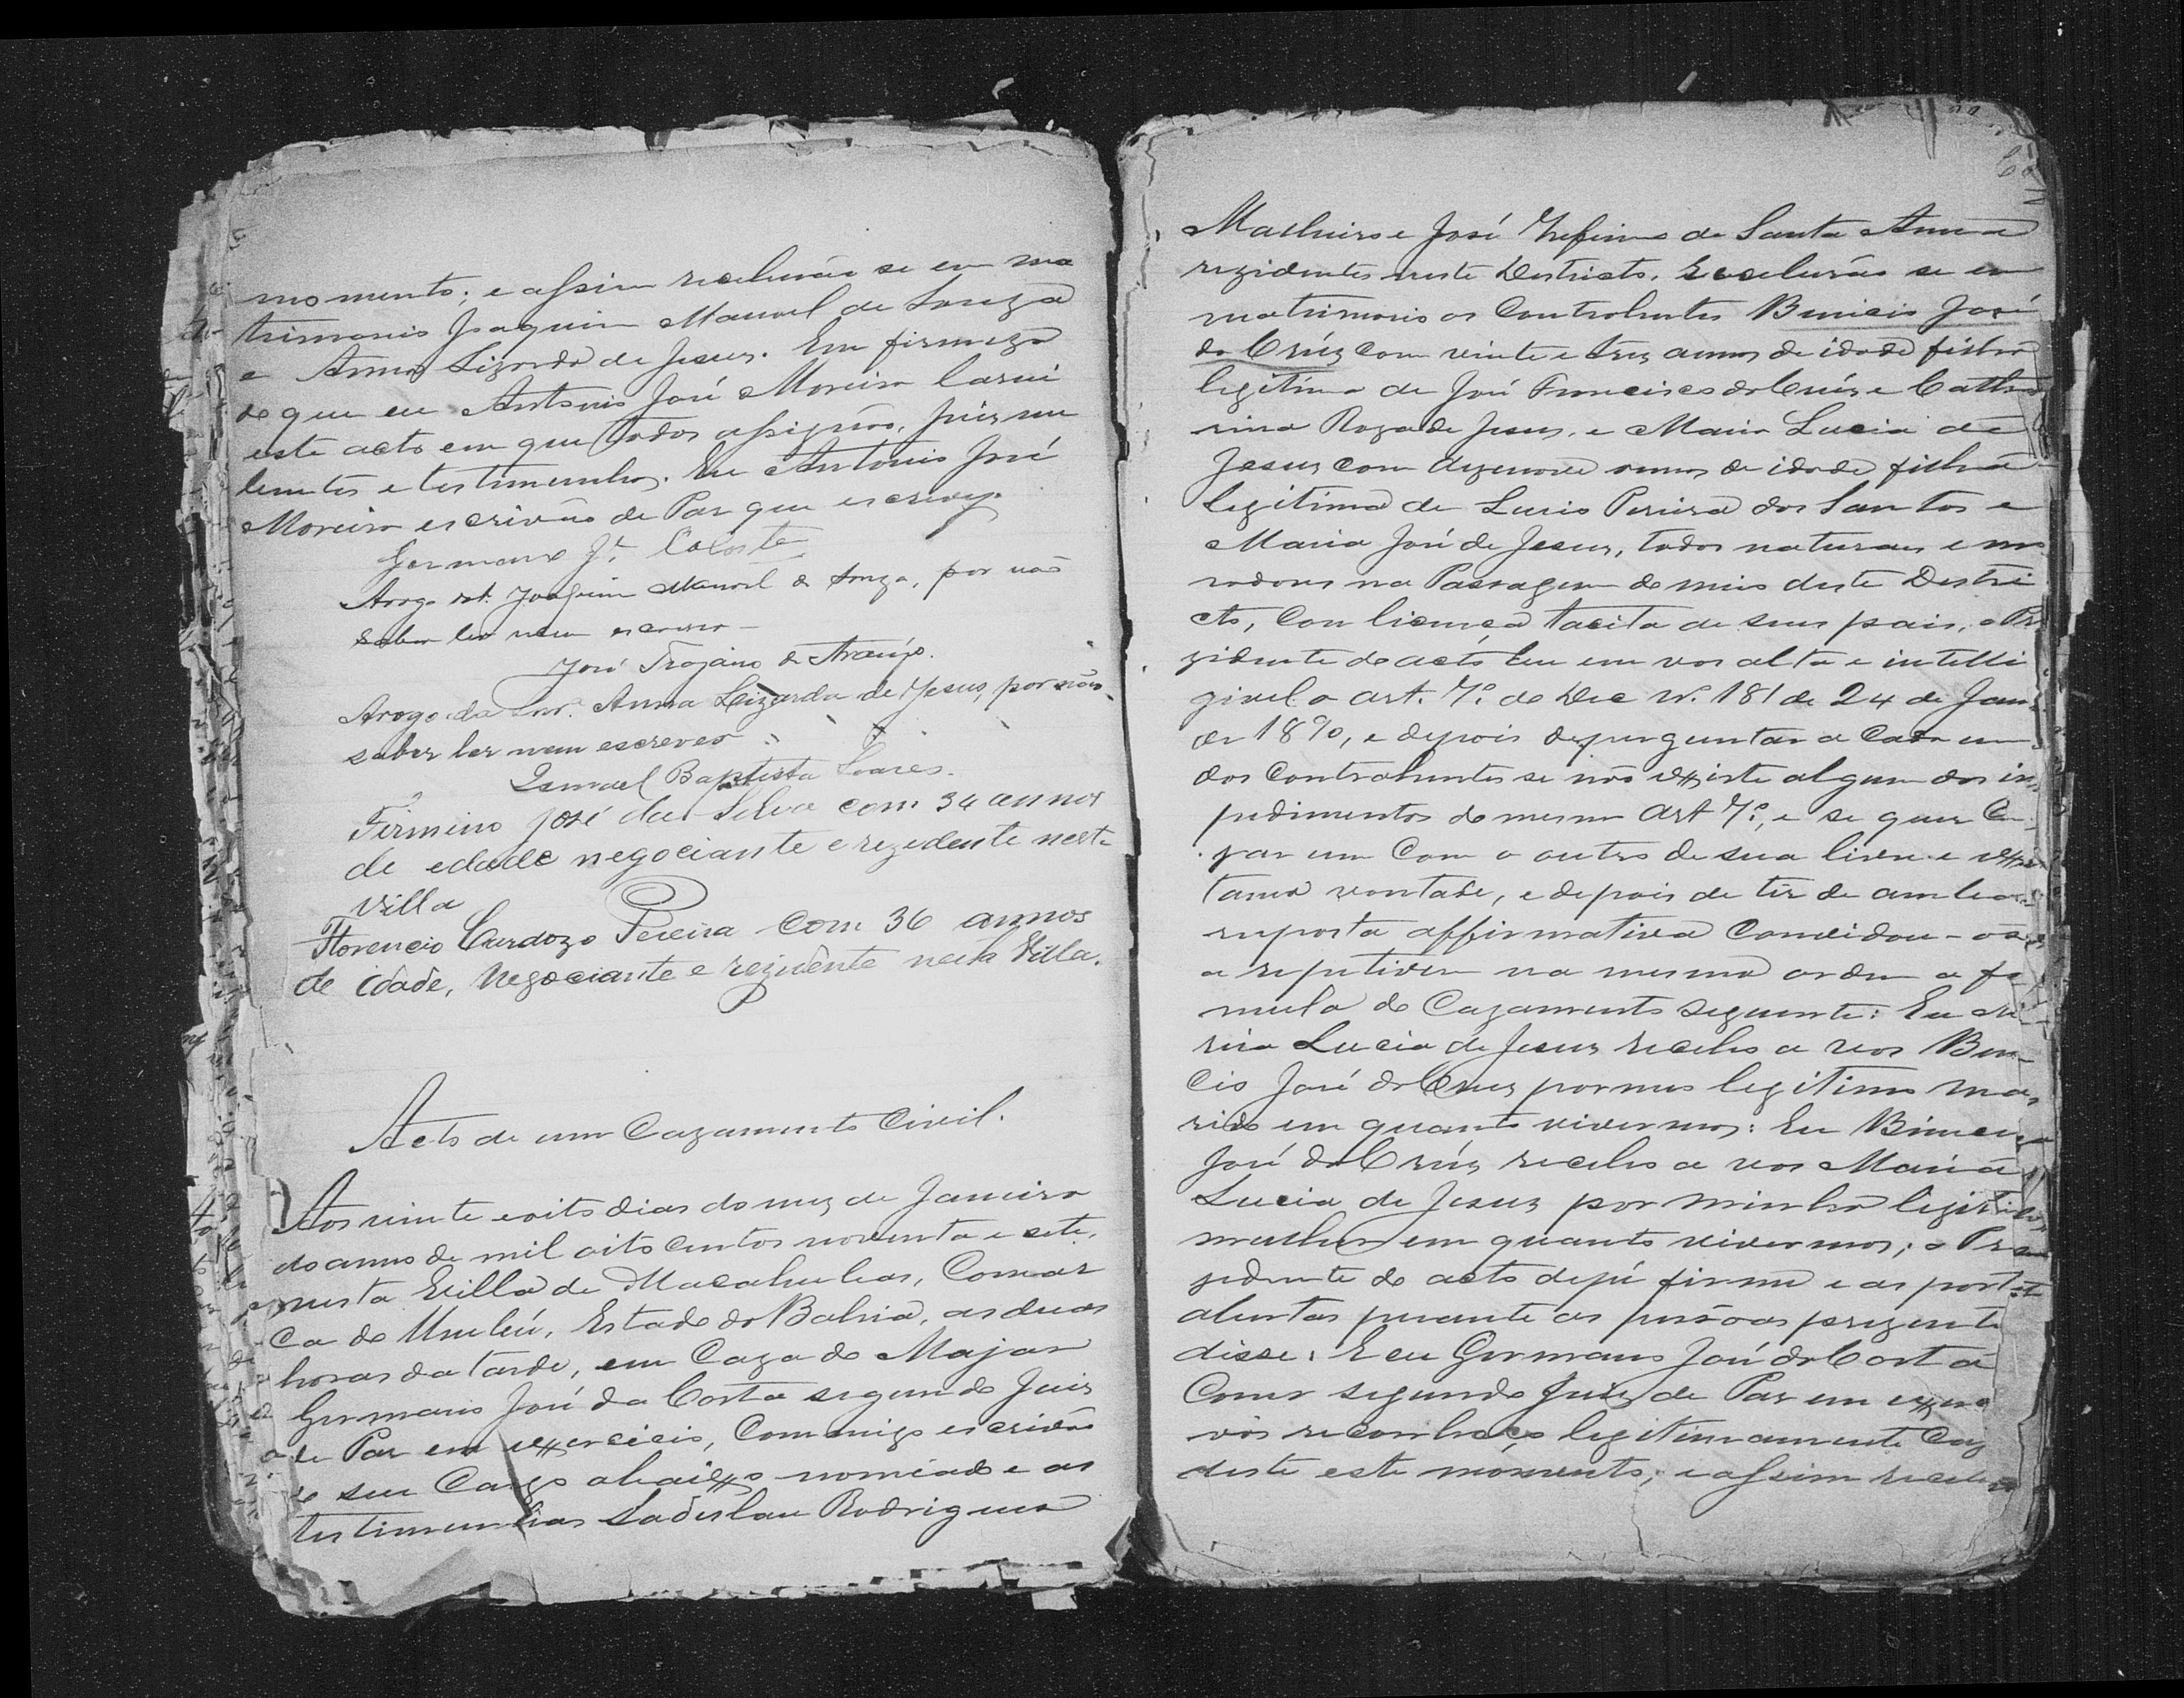 momento; e assim receberão se em ma
trimonio Joaquim Manoel de Souza
e Anna Lizarda de Jesus. Em firmeza
do que eu Antonio José Moreira lavrei
este acto em que todos assignão, Juiz
e testimunhas. Eu Antonio José
Moreira escrivão de Paz que escrevy.
Germano J.e Costa
Arogo do Sr. Joaquim Manoel de Souza, por não
saber ler nem escrever—
José Trajano de Araújo.
Arogo da Snr.a Anna Lizarda de Jesus, por não
saber ler nem escrever.
Ismael Baptista Soares.
Firmino José da Silva com 34 annos
de edade negociante e rezedente nesta
villa
Florencio Cardozo Pereira com 36 annos
de idade, Negociante e rezidente nesta Villa.
Acto de um Cazamento Civil.
Aos vinte e oito dias do mez de Janeiro
do anno de mil oito centos noventa e sete,
nesta Villa de Macahubas, Comar
ca de Urubú, Estado da Bahia, as duas
horas da tarde, em Caza do Major
Germano José da Costa segundo Juiz
de Paz em exercicio, Commigo escrivão
de seu Cargo abaixo nomiado e as
testimunhas Ladislau Rodrigues
e José Zefirino de Santa Anna
rezidentes neste Destricto. Receberão se em
matrimonio os Contrahentes Binicio José
da Crúz com vinte e trez annos de idade filho
legitimo de José Francisco da Crúz e Catha
rina Roza de Jesus, e Maria Lucia de
Jesus com dezenove annos de idade filha
legitima de Lucio Pereira dos Santos e
Maria José de Jesus, todos naturaes e mo
radores na Passagem do meio deste Destri
cto, Com licença tacita de seus pais, o Pr
zidente do acto leu em vos alta e intelli
givel o art. 7.º do Dec N.º 181 de 24 de Jan
de 1890, e depois de perguntar a Cada um
dos Contrahentes se não existe algum dos im
pedimentos do mesmo Art 7.º, e se quer Ca
zar um Com o outro de sua livre e expon
tania vontade, e depois de ter de ambos
resposta affirmativa Convidou-os
a repetirem na mesma ordem a fo
mula do Cazamento seguinte: Eu Ma
ria Lucia de Jesus recebo a vos Bini
cio José da Cruz por meu legitimo ma
rido em quanto vivermos: Eu Binicio
José da Crúz recebo a vos Maria
Lucia de Jesus por minha legitima
mulher em quanto vivermos; o Pre
zidente do acto de pé firme e as portas
abertas perante as pessoas prezente
disse: E eu Germano José da Costa
Como segundo Juiz de Paz em exer
vos reconheço legitimamente Caz
deste este momento; e assim receber